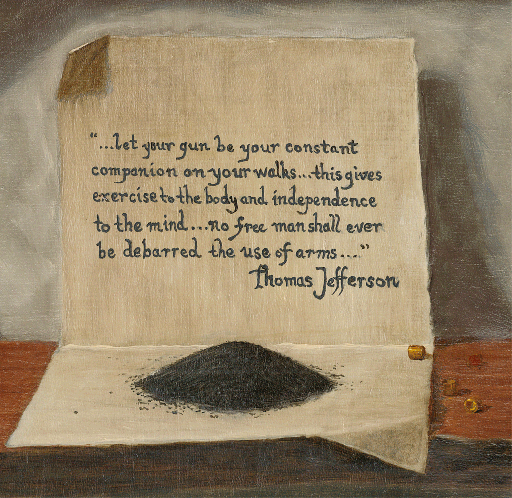 "...let your gun be your constant
companion on your walks...this gives
exercise to the body and independence
to the mind...no free man shall ever
be debarred the use of arms...."
Thomas Jefferson